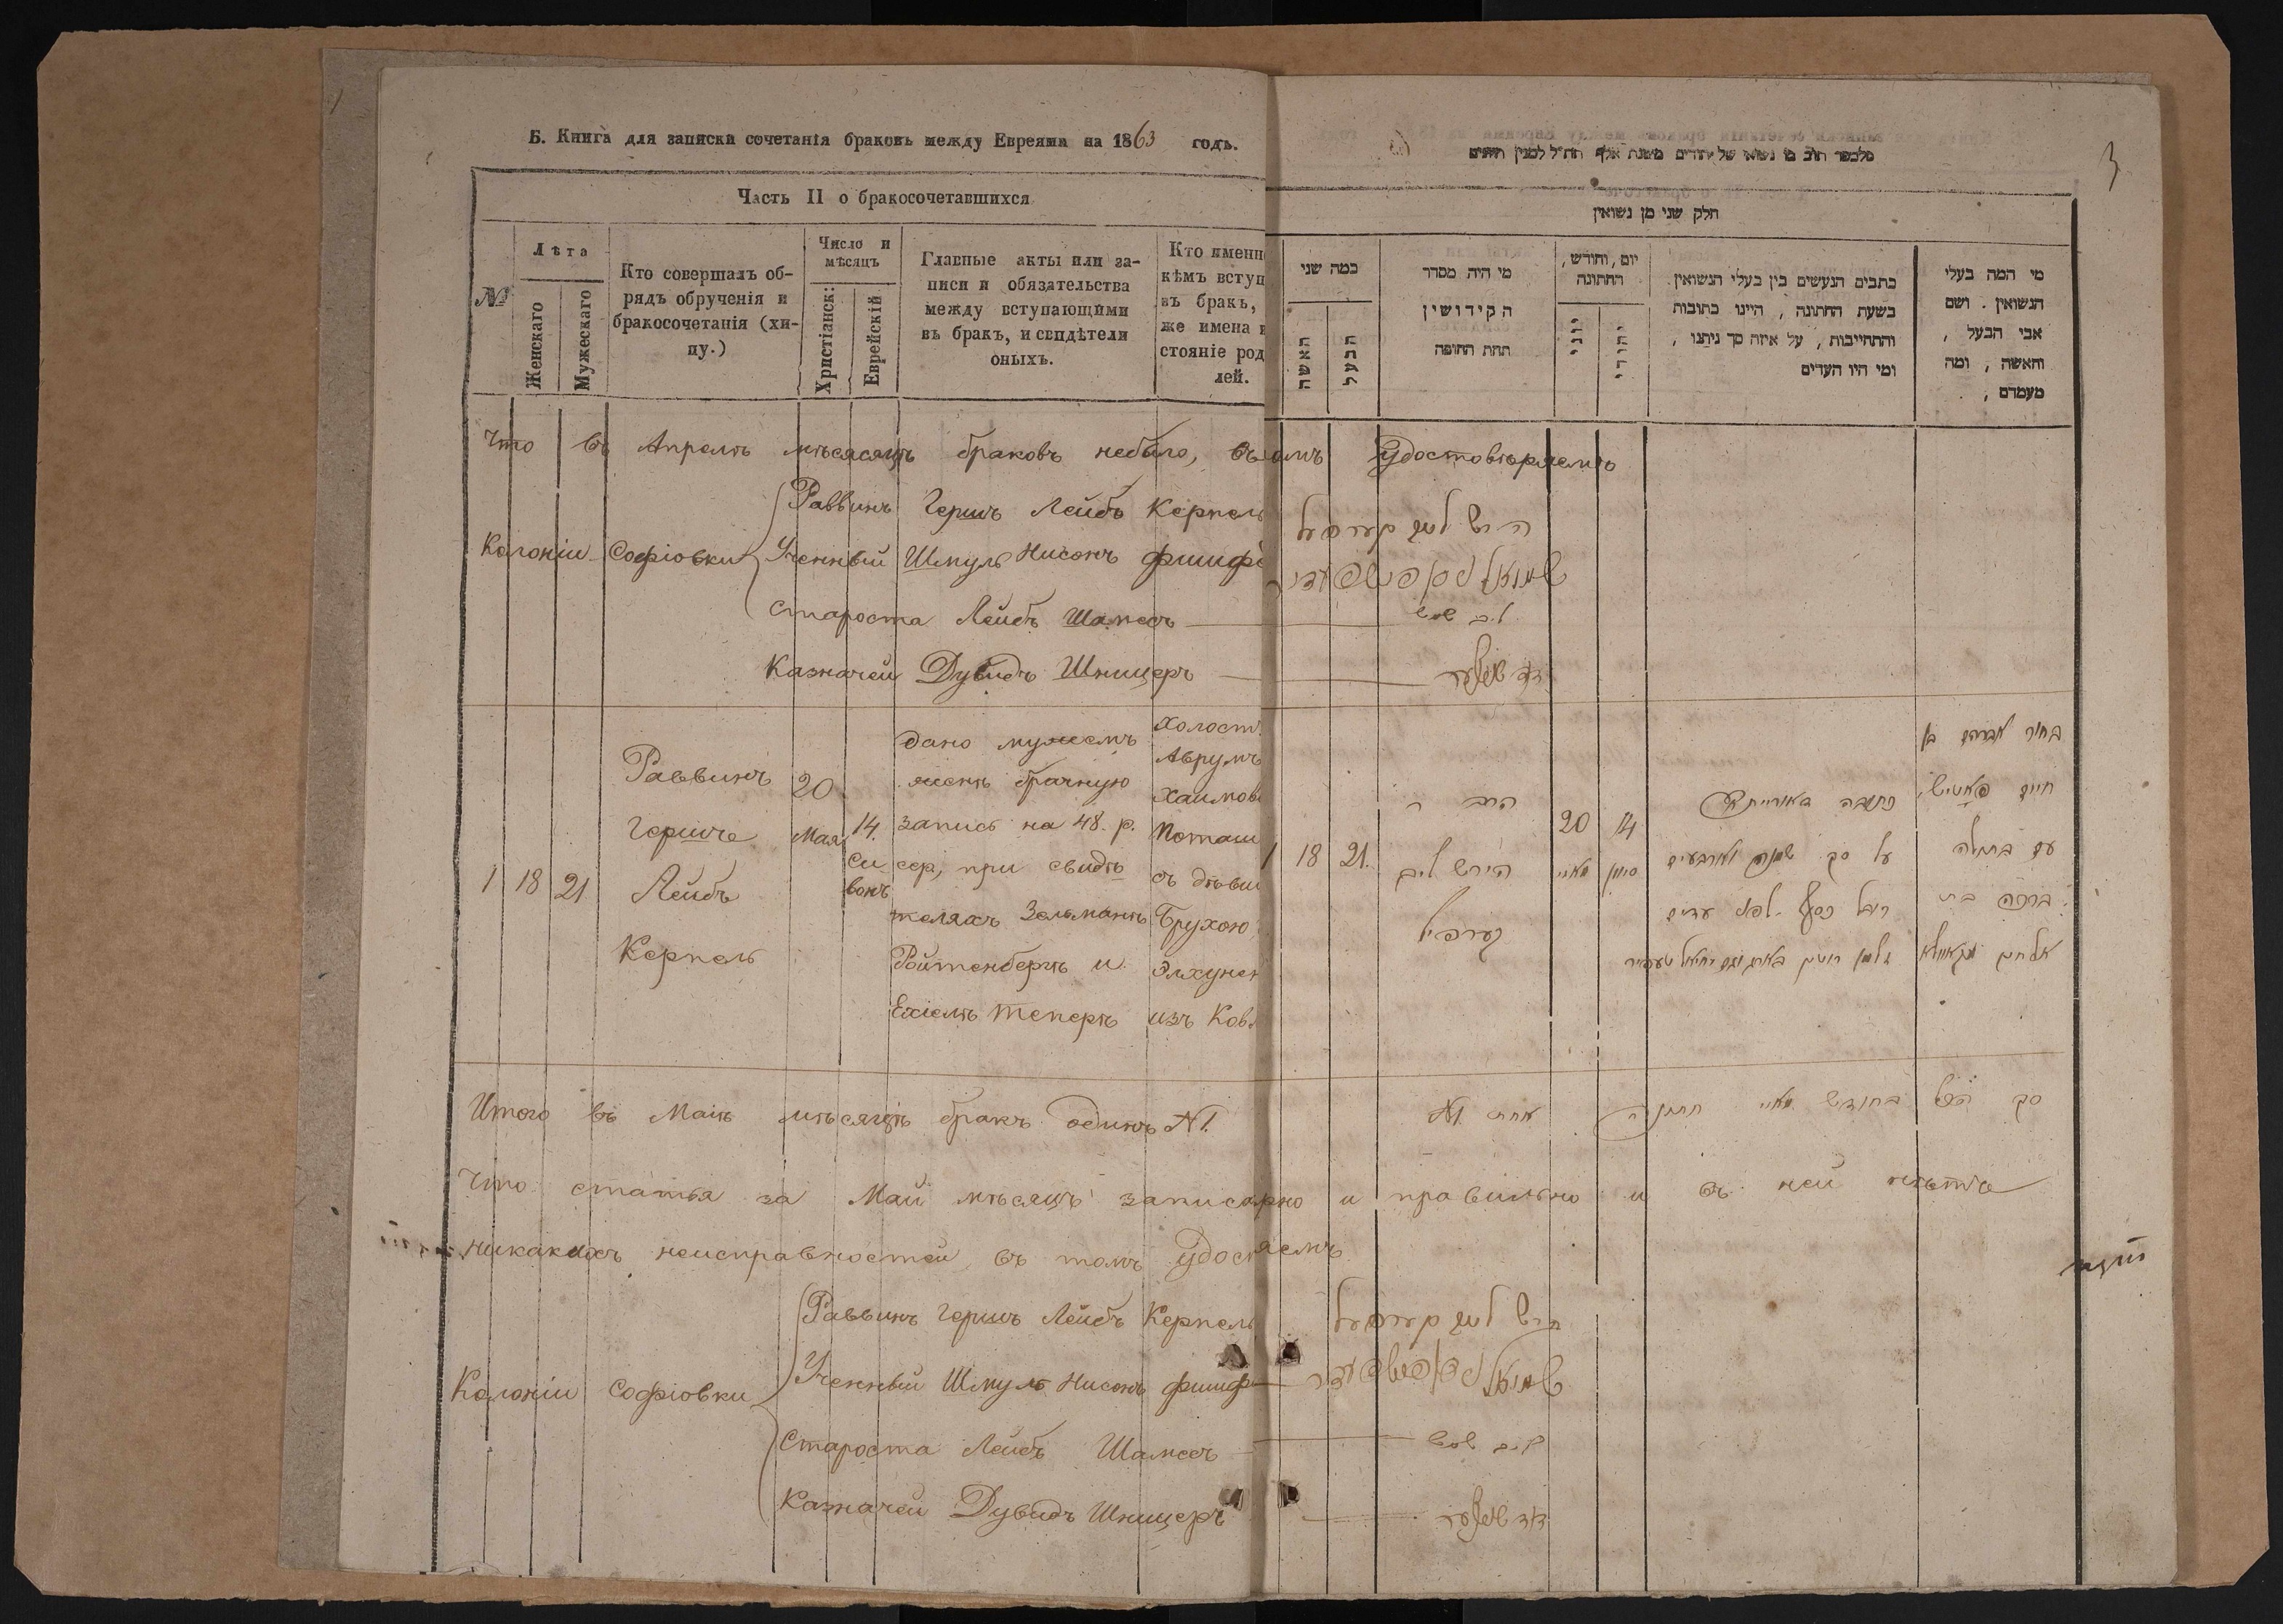 Б. Книга для записки сочетанія браковъ между Евреями на 1863 годъ.
Часть II о бракосочетавшихся
№
Лѣта
Женскаго
Мужескаго
Кто совершалъ об-
рядъ обрученія и
бракосочетанія (хи-
пу.)
Число и
мѣсяцъ
Христіанск:
Еврейскій
Главные акты или за-
писи и обязательства
между вступающими
въ бракъ, и свидѣтели
оныхъ.
Кто именн
кѣмъ вступ
въ бракъ,
же имена и
стояніе род
лей.
Что въ Апрелѣ мѣсясяцѣ браковъ небыло, въ
Колоніи Софіовки
Раввинъ Гершъ Лейбъ Керпель
Ученный Шмуль Нисонъ Фишф
Староста Лейбъ Шамесъ
Казначей Дувидъ Шницеръ
1 18 21
Раввинъ
Гершъ
Лейбъ
Керпель
20
Мая
14.
Си
вонъ
Дано мужемъ
женѣ брачную
запись на 48. р.
сер, при свидѣ
теляхъ Зельманѣ
Ройтенбергѣ и
Ехіелѣ Теперѣ
Холост
Аврумъ
Хаимов
Поташ
съ дѣви
Брухою
Эльхунен
изъ Ков
Итого въ Маіѣ мѣсяцѣ бракъ одинъ №1.
Что статья за Май мѣсяцъ записанно и правильно и въ ней нѣтъ
никакихъ неисправностей въ томъ удост яемъ
Колоніи Софіовки
Раввинъ Гершъ Лейбъ Керпель
Ученный Шмуль Нисонъ Фишф
Староста Лейбъ Шамесъ
Казначей Дувидъ Шницеръ
3
חלק שני מן נשואין
כמה שני
האשה
הבעל
מי היה מסדר
הקידושין
תחת החופה
יום, וחודש,
החתונה
יווני
יהודי
כתבים הנעשים בין בעלי הנשואין
בשעת החתונה, היינו כתובות
והתחייבות, על איזה סך ניתנו,
ומי היו העדים
מי המה בעלי
הנשואין. ושם
אבי הבעל,
והאשה, ומה
מעמדם,
удостовѣряемъ
הירש לייב קערפעל
לייב שמש
1 18 21.
הרב ר
הירש לייב
קערפיל
20
מאיי
14
סיון
כתובה
על סך שמנה וארבעים
רובל כסף לפני עדים
בחור אברהם בן
חיים
עם בתולה
ברכה בת
סך הכל בחודש מאיי חתונה אחת №1
הירש לייב קערפעל
לייב שמש